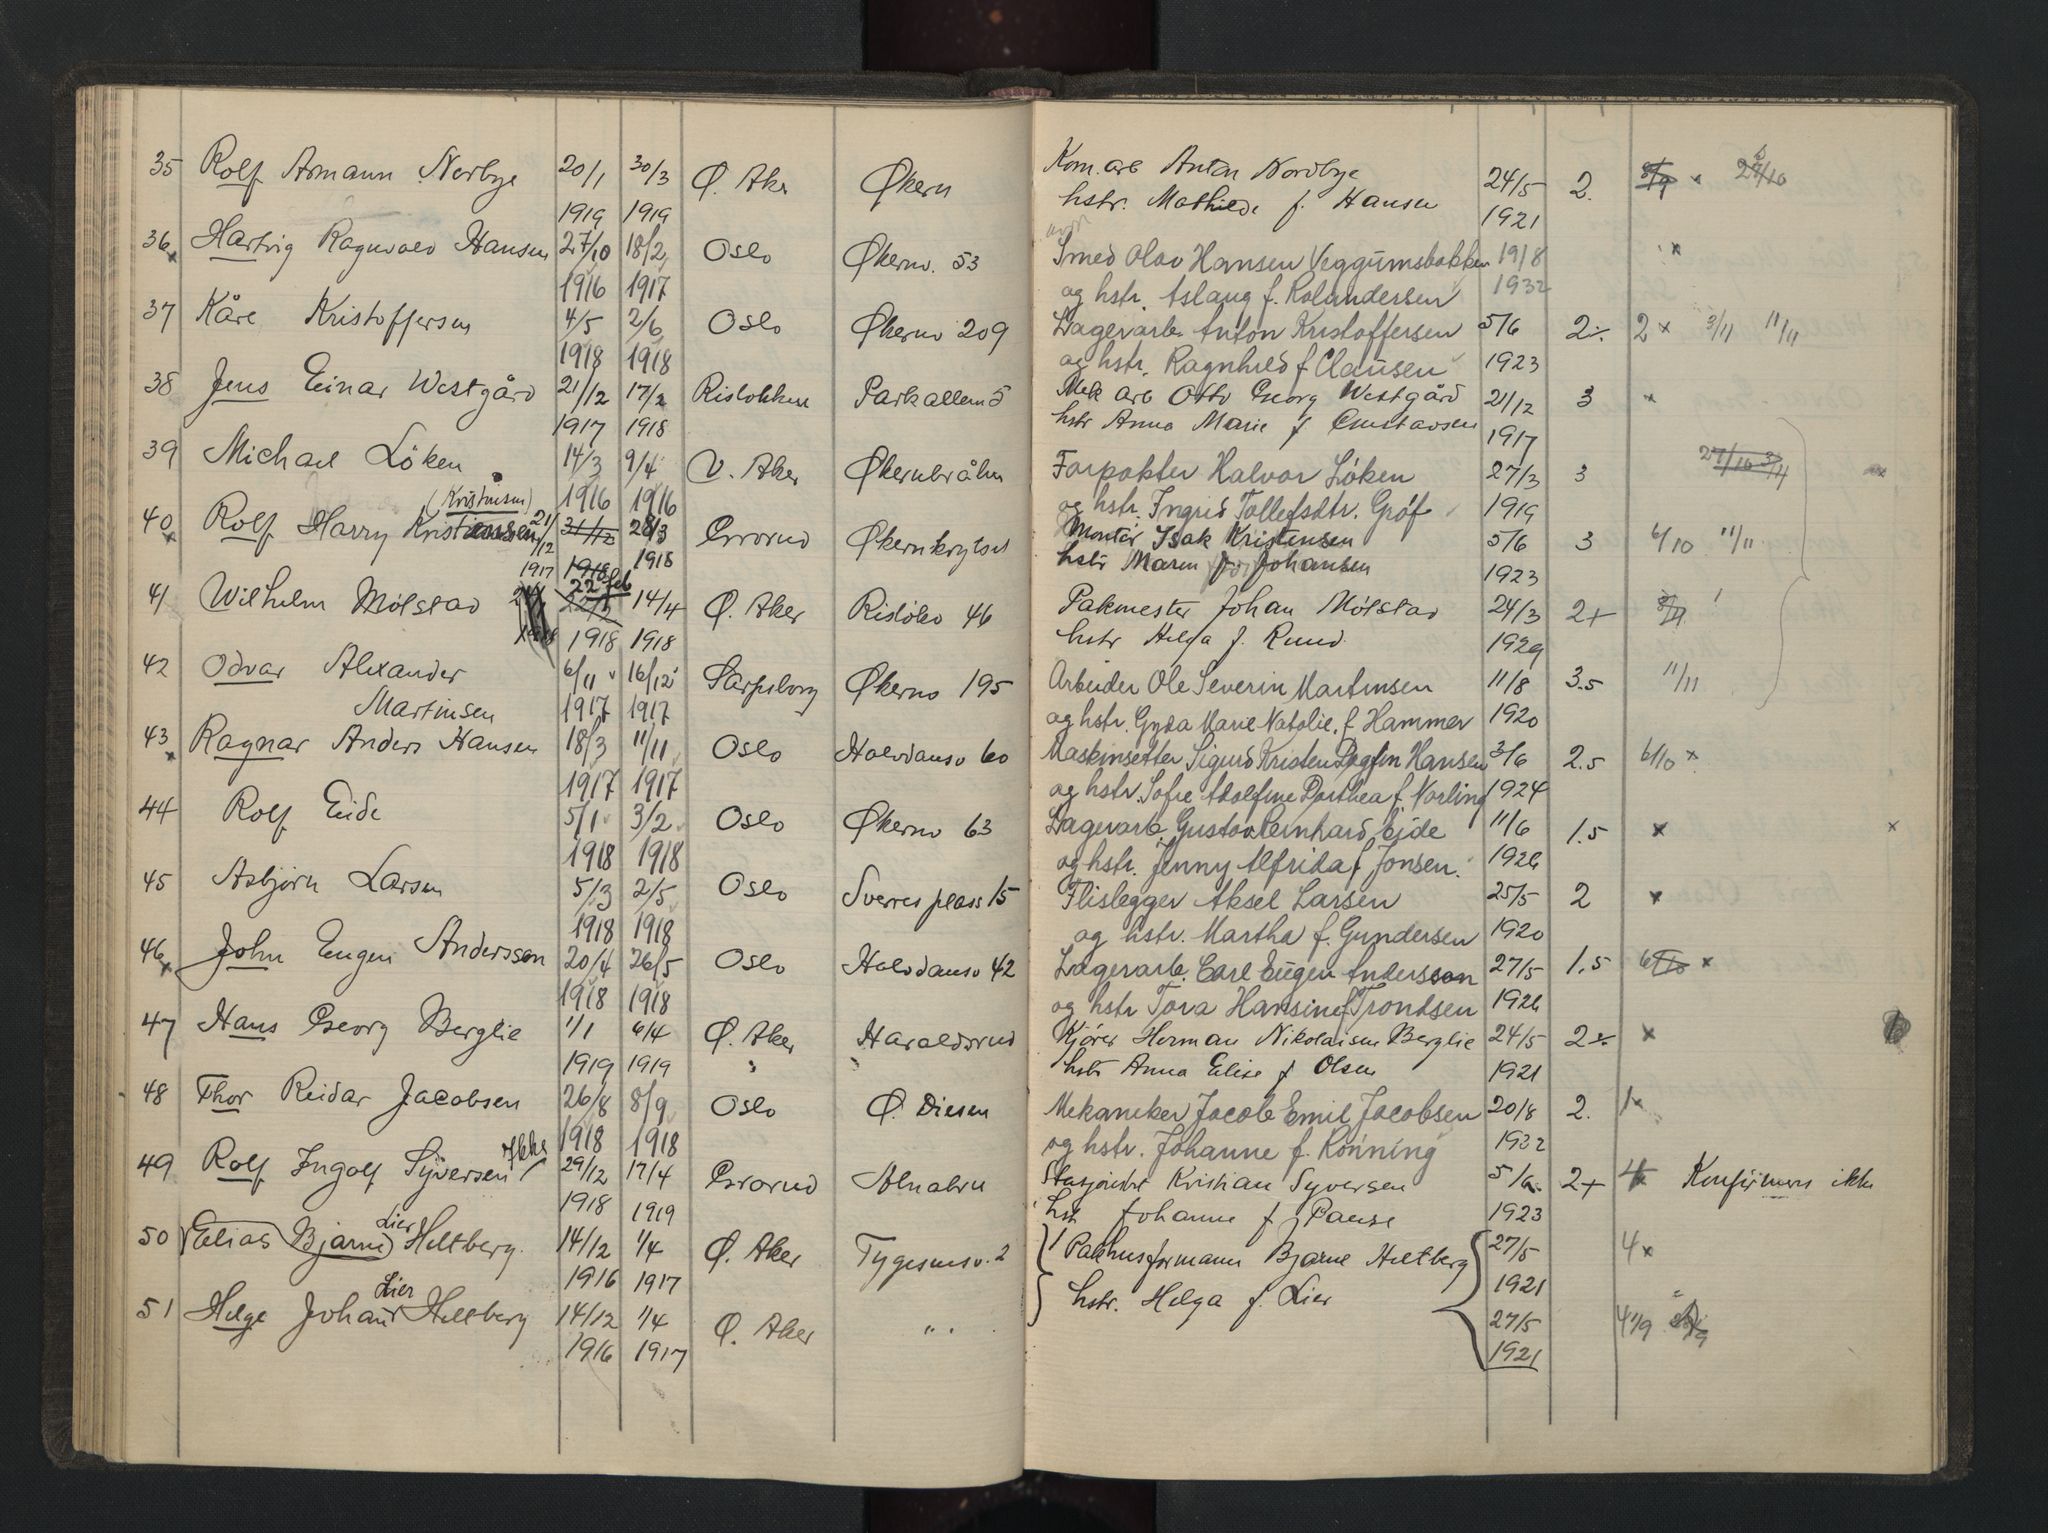 35 Rolf Armann Norbye 20/1 30/3 Ø. Aker Økern Kom. arb Anton Nordbye 24/5 2.
1919 1919 hstr. Mathilde f. Hansen 1921
36 Hartvig Ragnvald Hansen 27/10 18/2 Oslo Økernv. 53 Smed Olav Hansen Veggumsbakken 1918 x
1916 1917 og hstr. Aslaug f. Rolandersen 1932
37 Kåre Kristoffersen 4/5 2/6 Oslo Økernv 209 Lagerarb. Anton Kristoffersen 5/6 2÷ 2 x 3/11 11/11
1918 1918 og hstr. Ragnhild f Clausen 1923
38 Jens Einar Westgård 21/12 17/2 Risløkken Parkalleen 5 Mek arb Otto Georg Westgård 21/12 3 x
1917 1918 hstr Anna Marie f. Gustavsen 1917
39 Michael Löken 14/3 9/4 V. Aker Økernbråten Forpakter Halvor Löken 27/3 3 27/10 3/4
1916 1916 og hstr. Ingrid Tollefsdtr. Gróf 1919
(Kristensen)
40 Rolf Harry Kristiansen 21/12 31/12 28/3 Grorud Økernkrysset Montör Isak Kristensen 5/6 3 6/10 11/11
1917 1918 1918 hstr Maren f. Johansen 1923
41 Wilhelm Mölstad 22 feb 14/4 Ø. Aker Rislökv 46 Pakmester Johan Mölstad 24/3 2+
1918 1918 hstr Helga f. Ruud 1929
42 Odvar Alexander 6/11 16/12 Sarpsborg Økernv 195 Arbeider Ole Severin Martinsen 11/8 3.5 11/11
Martinsen 1917 1917 og hstr. Gyda Marie Natalie. f Hammer 1920
43 Ragnar Anders Hansen 18/3 11/11 Oslo Halvdansv 60 Maskinsetter Sigurd Kristen Dagfin Hansen 3/6 2.5 6/10 x
1917 1917 og hstr. Sofie Adolfine Dorthea f. Norling 1924
44 Rolf Eide 5/1 3/2 Oslo Økernv 63 Lagerarb. Gustav Bernhard Eide 11/6 1.5 x x
1918 1918 og hstr. Jenny Alfrida f Jonsen. 1926
45 Asbjörn Larsen 5/3 2/5 Oslo Sverres plass 15 Flislegger Aksel Larsen 25/5 2 x
1918 1918 og hstr. Martha f. Gundersen 1920
46 John Eugen Andersson 20/4 26/5 Oslo Halvdansv 42 Lagerarb. Carl Eugen Andersson 27/5 1.5 6/10 x
1918 1918 og hstr Tora Hansine f Trondsen 1926
47 Hans Georg Berglie 1/1 6/4 Ø. Aker Haraldsrud Kjörer Herman Nikolaisen Berglie 24/5 2÷ x
1919 1919 hstr Anna Elise f Olsen 1921
48 Thor Reidar Jacobsen 26/8 8/9 Oslo Ø. Diesen Mekaniker Jacob Emil Jacobsen 20/8 2. 1x
1918 1918 og hstr. Johanne f. Rönning 1922
49 Rolf Ingolf Syversen Ikke 29/12 17/4 Grorud Alnabru Stasjonsbt Kristian Syversen 5/6. 2+ 4 Konfirmeres ikke
1918 1919 hst Johanne f Pause 1923
50 (Elias Bjarne) Lier Heltberg. 14/12 1/4 Ø. Aker Tygesensv. 2 Pakhusformann Bjarne Heltberg 27/5 4x
1916 1917 hstr. Helga f. Lier 1921
51 Helge Johan Lier Heltberg 14/12 1/4 Ø. Aker " " 27/5 4 1/9
1916 1917 1921